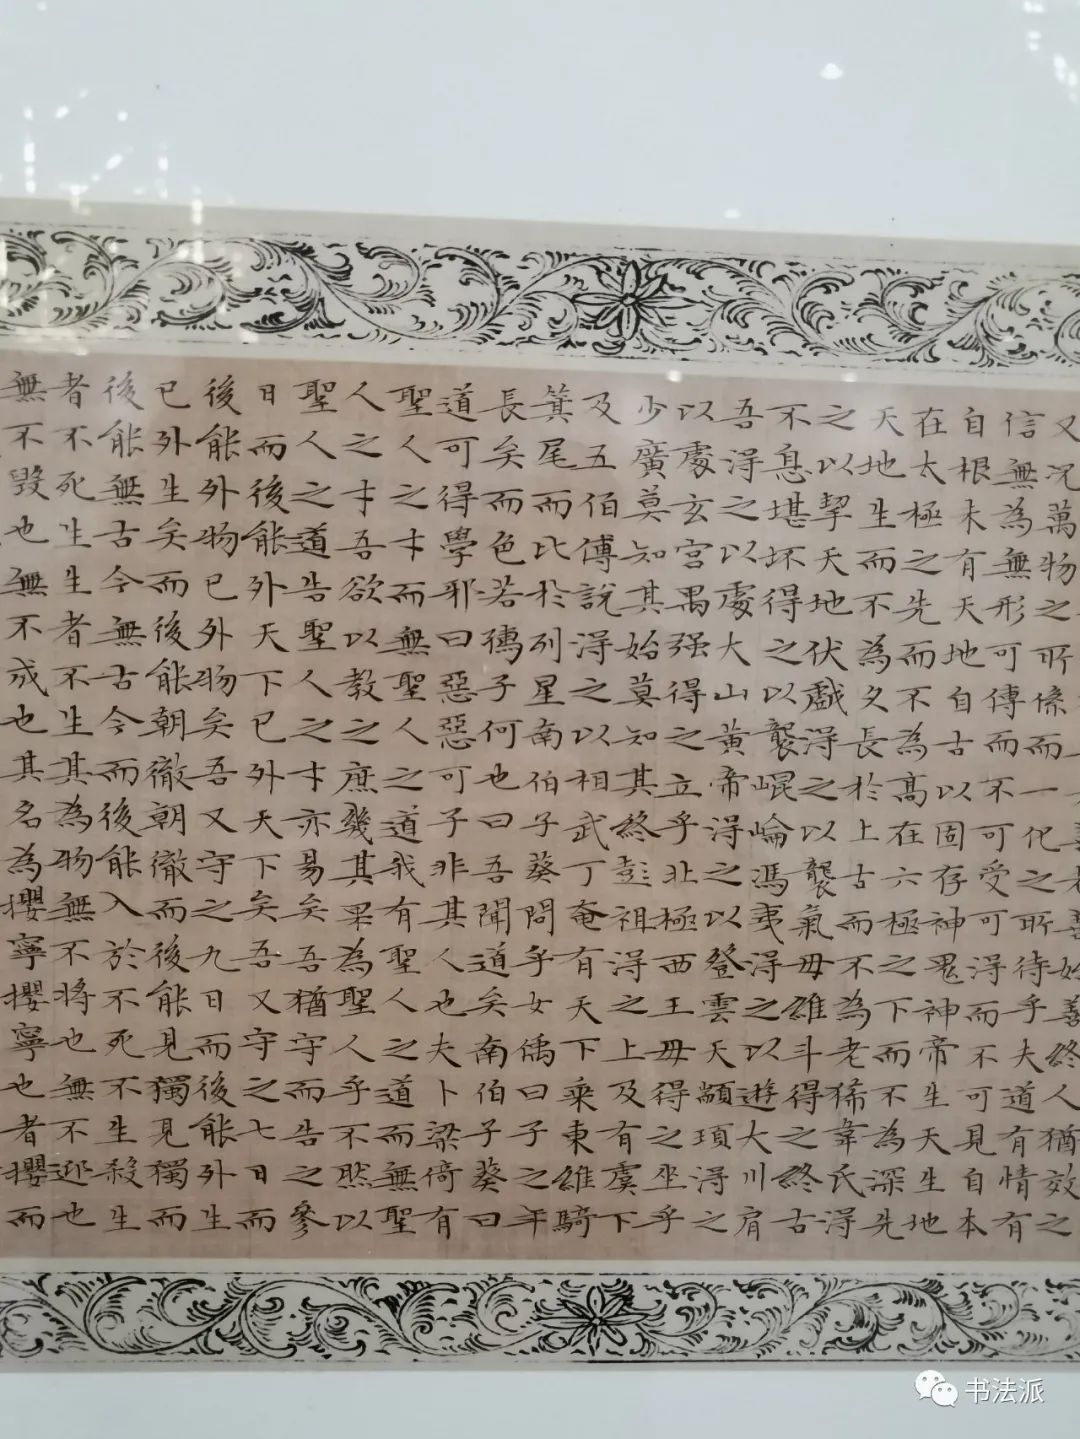 善老善始善終人猶效之
又況萬物之所係而一化之所待乎夫道有情有
信無為無形可傳而不可受可得而不可見自本
自根未有天地自古以固存神鬼神帝生天生地
在太極之先而不為高在六極之下而不為深先
天地生而不為久長於上古而不為老狶韋氏得
之以挈天地伏戲得之以襲氣毋維斗得之終古
不息堪坏得之以襲崐崘馮夷得之以遊大川肩
吾得之以處大山黃帝得之以登雲天顓頊得之
以處玄宮禺强得之立乎北極西王毋得之坐乎
少廣莫知其始莫知其終彭祖得之上及有虞下
及五伯傅說得之以相武丁奄有天下乗東維騎
箕尾而比於列星南伯子葵問乎女偊曰子之年
長矣而色若孺子何也曰吾聞道矣南伯子葵曰
道可得學邪曰惡惡可子非其人也夫卜梁倚有
聖人之才而無聖人之道我有聖人之道而無聖
人之才吾欲以教之庶幾其果為聖人乎不然以
聖人之道告聖人之才亦易矣吾猶守而告之參
日而後能外天下已外天下矣吾又守之七日而
後能外物已外物矣吾又守之九日而後能外生
已外生矣而後能朝徹朝徹而後能見獨見獨而
後能無古今無古今而後能入於不死不生殺生
者不死生生者不生其為物無不將也無不迎也
無不毀也無不成也其名為攖寧攖寧也者攖而
书法派